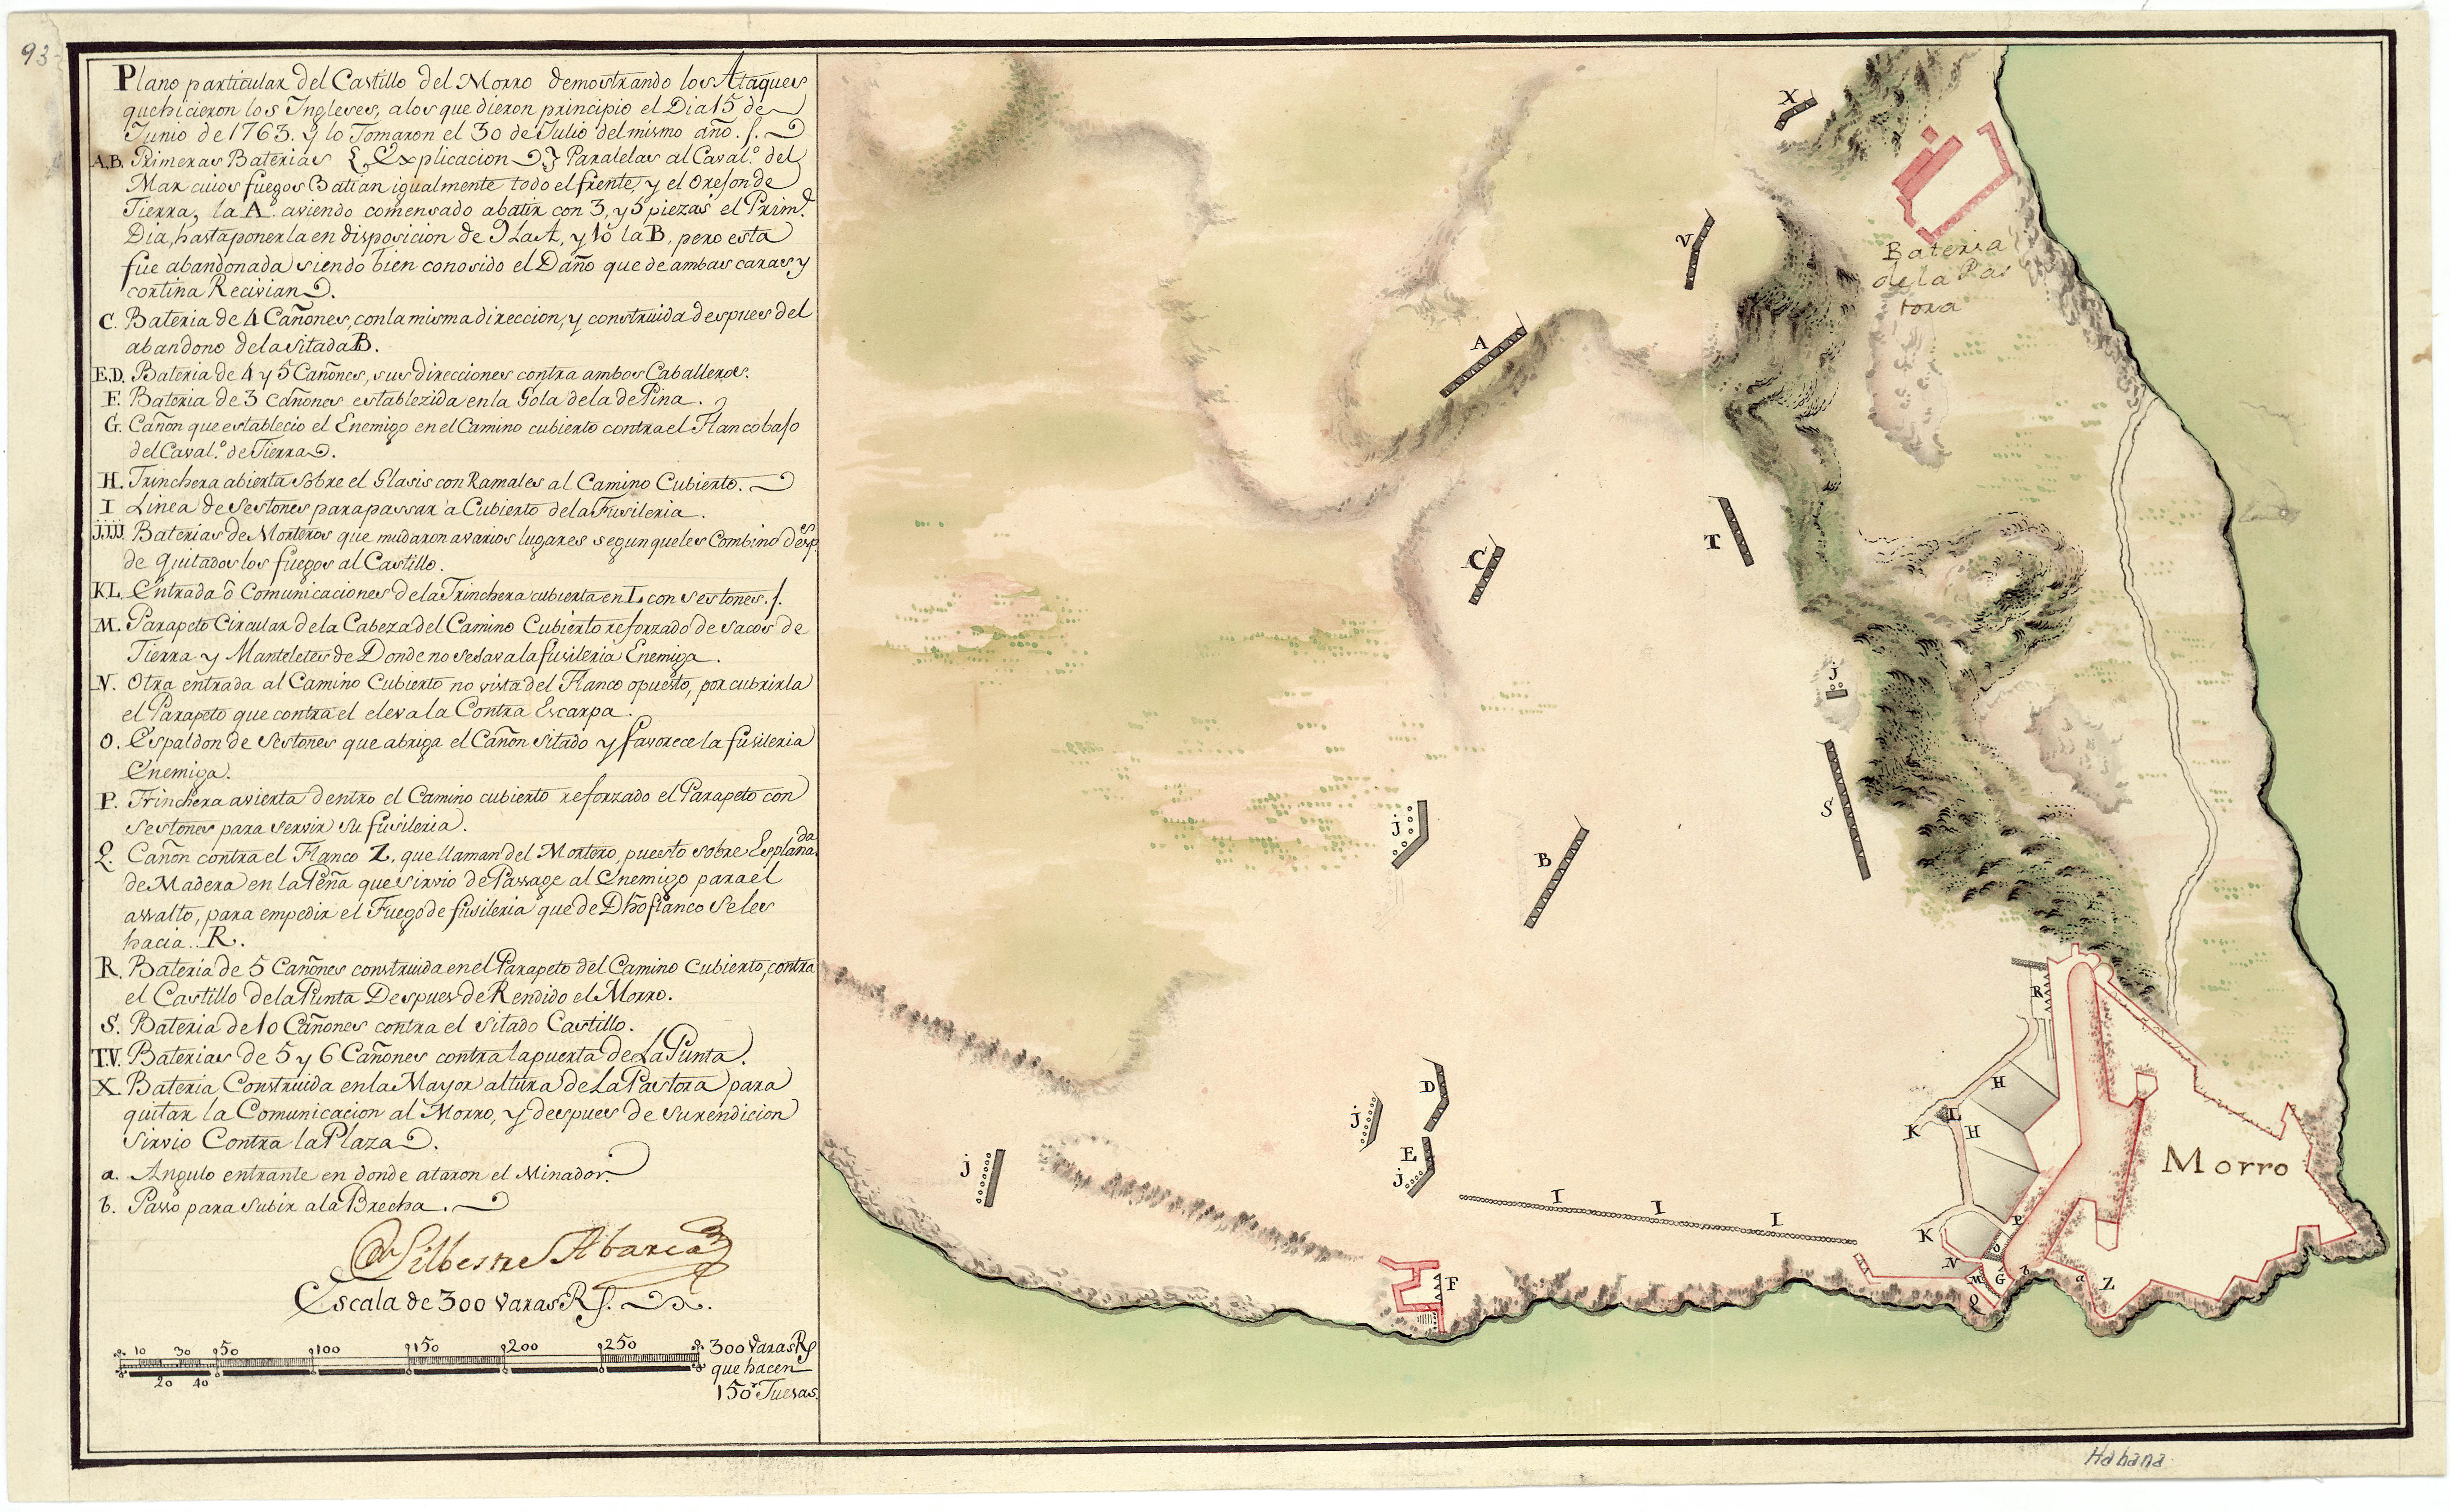 93
Plano particular del Castillo del Morro demostrando los Ataques
que hicieron los Ingleses, a los que dieron principio el Dia 15 de
Junio de 1763. y lo Tomaron el 30 de Julio del mismo año.
A,B. Primeras Baterias Explicacion Paralelas al Caval.º del
Mar cuios fuegos Batian igualmente todo el frente, y el Orejon de
Tierra, la A. aviendo comensado abatir con 3, y 5 piezas el Prim.
Dia, hasta ponerla en disposicion de 9 La A, y 10 la B, pero esta
fue abandonada siendo bien conosido el Daño que de ambas caras y
cortina Recivian.
C. Bateria de 4 Cañones, con la misma direccion, y construida despues del
abandono de la sitada B.
E,D. Bateria de 4 y 5 Cañones, sus direcciones contra ambos Caballeros.
F. Bateria de 3 cañones establezida en la Gola de la de Pina.
G. Cañon que establecio el Enemigo en el Camino cubierto contra el Flanco bajo
del Caval.º de Tierra.
H. Trinchera abierta sobre el Glasis con Ramales al Camino Cubierto.
I Linea de Sestones para passar a Cubierto de la Fusileria.
j.j.j.j. Baterias de Morteros que mudaron a varios lugares segun que les Combino desp.es
de quitados los fuegos al Castillo.
KL. Entrada ô Comunicaciones de la Trinchera cubierta en L con Sestones.
M. Parapeto Circular de la Cabeza del Camino Cubierto reforzado de sacos de
Tierra y Manteletes de Donde no sesava la fusileria Enemiga.
N. Otra entrada al Camino Cubierto no vista del Flanco opuesto, por cubrirla
el Parapeto que contra el eleva la Contra Escarpa.
O. Espaldon de Sestones que abriga el Cañon sitado y favorece la fusileria
Enemiga.
P. Trinchera avierta dentro el Camino cubierto reforzado el Parapeto con
sestones para servir su fusileria.
Q. Cañon contra el Flanco Z, que llaman del Mortero, puesto sobre Esplanada
de Madera en la Peña que sirvio de Passage al Enemigo para el
assalto, para empedir el Fuego de fusileria que de Dho flanco seles
hacia. R.
R. Bateria de 5 Cañones construida en el Parapeto del Camino Cubierto, contra
el Castillo de la Punta Despues de Rendido el Morro.
S. Bateria de 10 Cañones contra el sitado Castillo.
T.V. Baterias de 5 y 6 Cañones contra la puerta de La Punta.
X. Bateria Construida en la Mayor altura de La Pastora para
quitar la Comunicacion al Morro, y despues de su rendicion
sirvio Contra la Plaza.
a. Angulo entrante en donde ataron el Minador.
b. Passo para subir a la Brecha.
Silbestre Abarca
Escala de 300 varas R
10 30 50 100 150 200 250 300 varas R
20 40 que hacen
150 Tuesas.
X
Bateria
de la Pas
tora
V
A
T
C
j
S
j
B
R
D
j
H
L
K
H
E
j
j
Morro
I I I
P
K
O
N
M G b a Z
Q
F
Habana